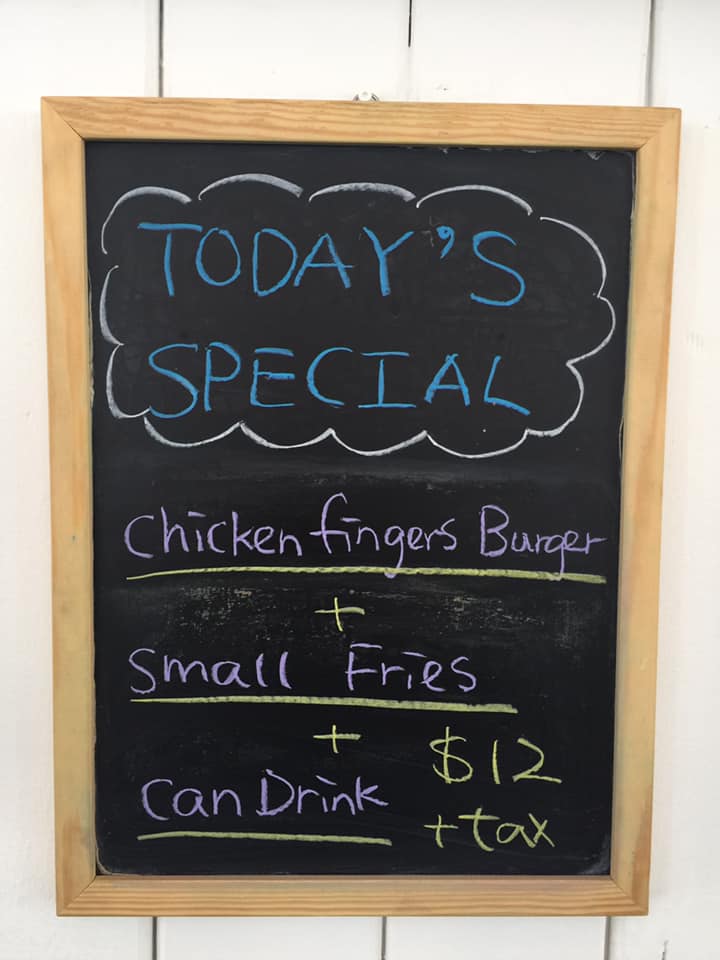 TODAY'S
SPECIAL
Chicken fingers Burger
+
Small Fries
+
$12
Can Drink
+tax